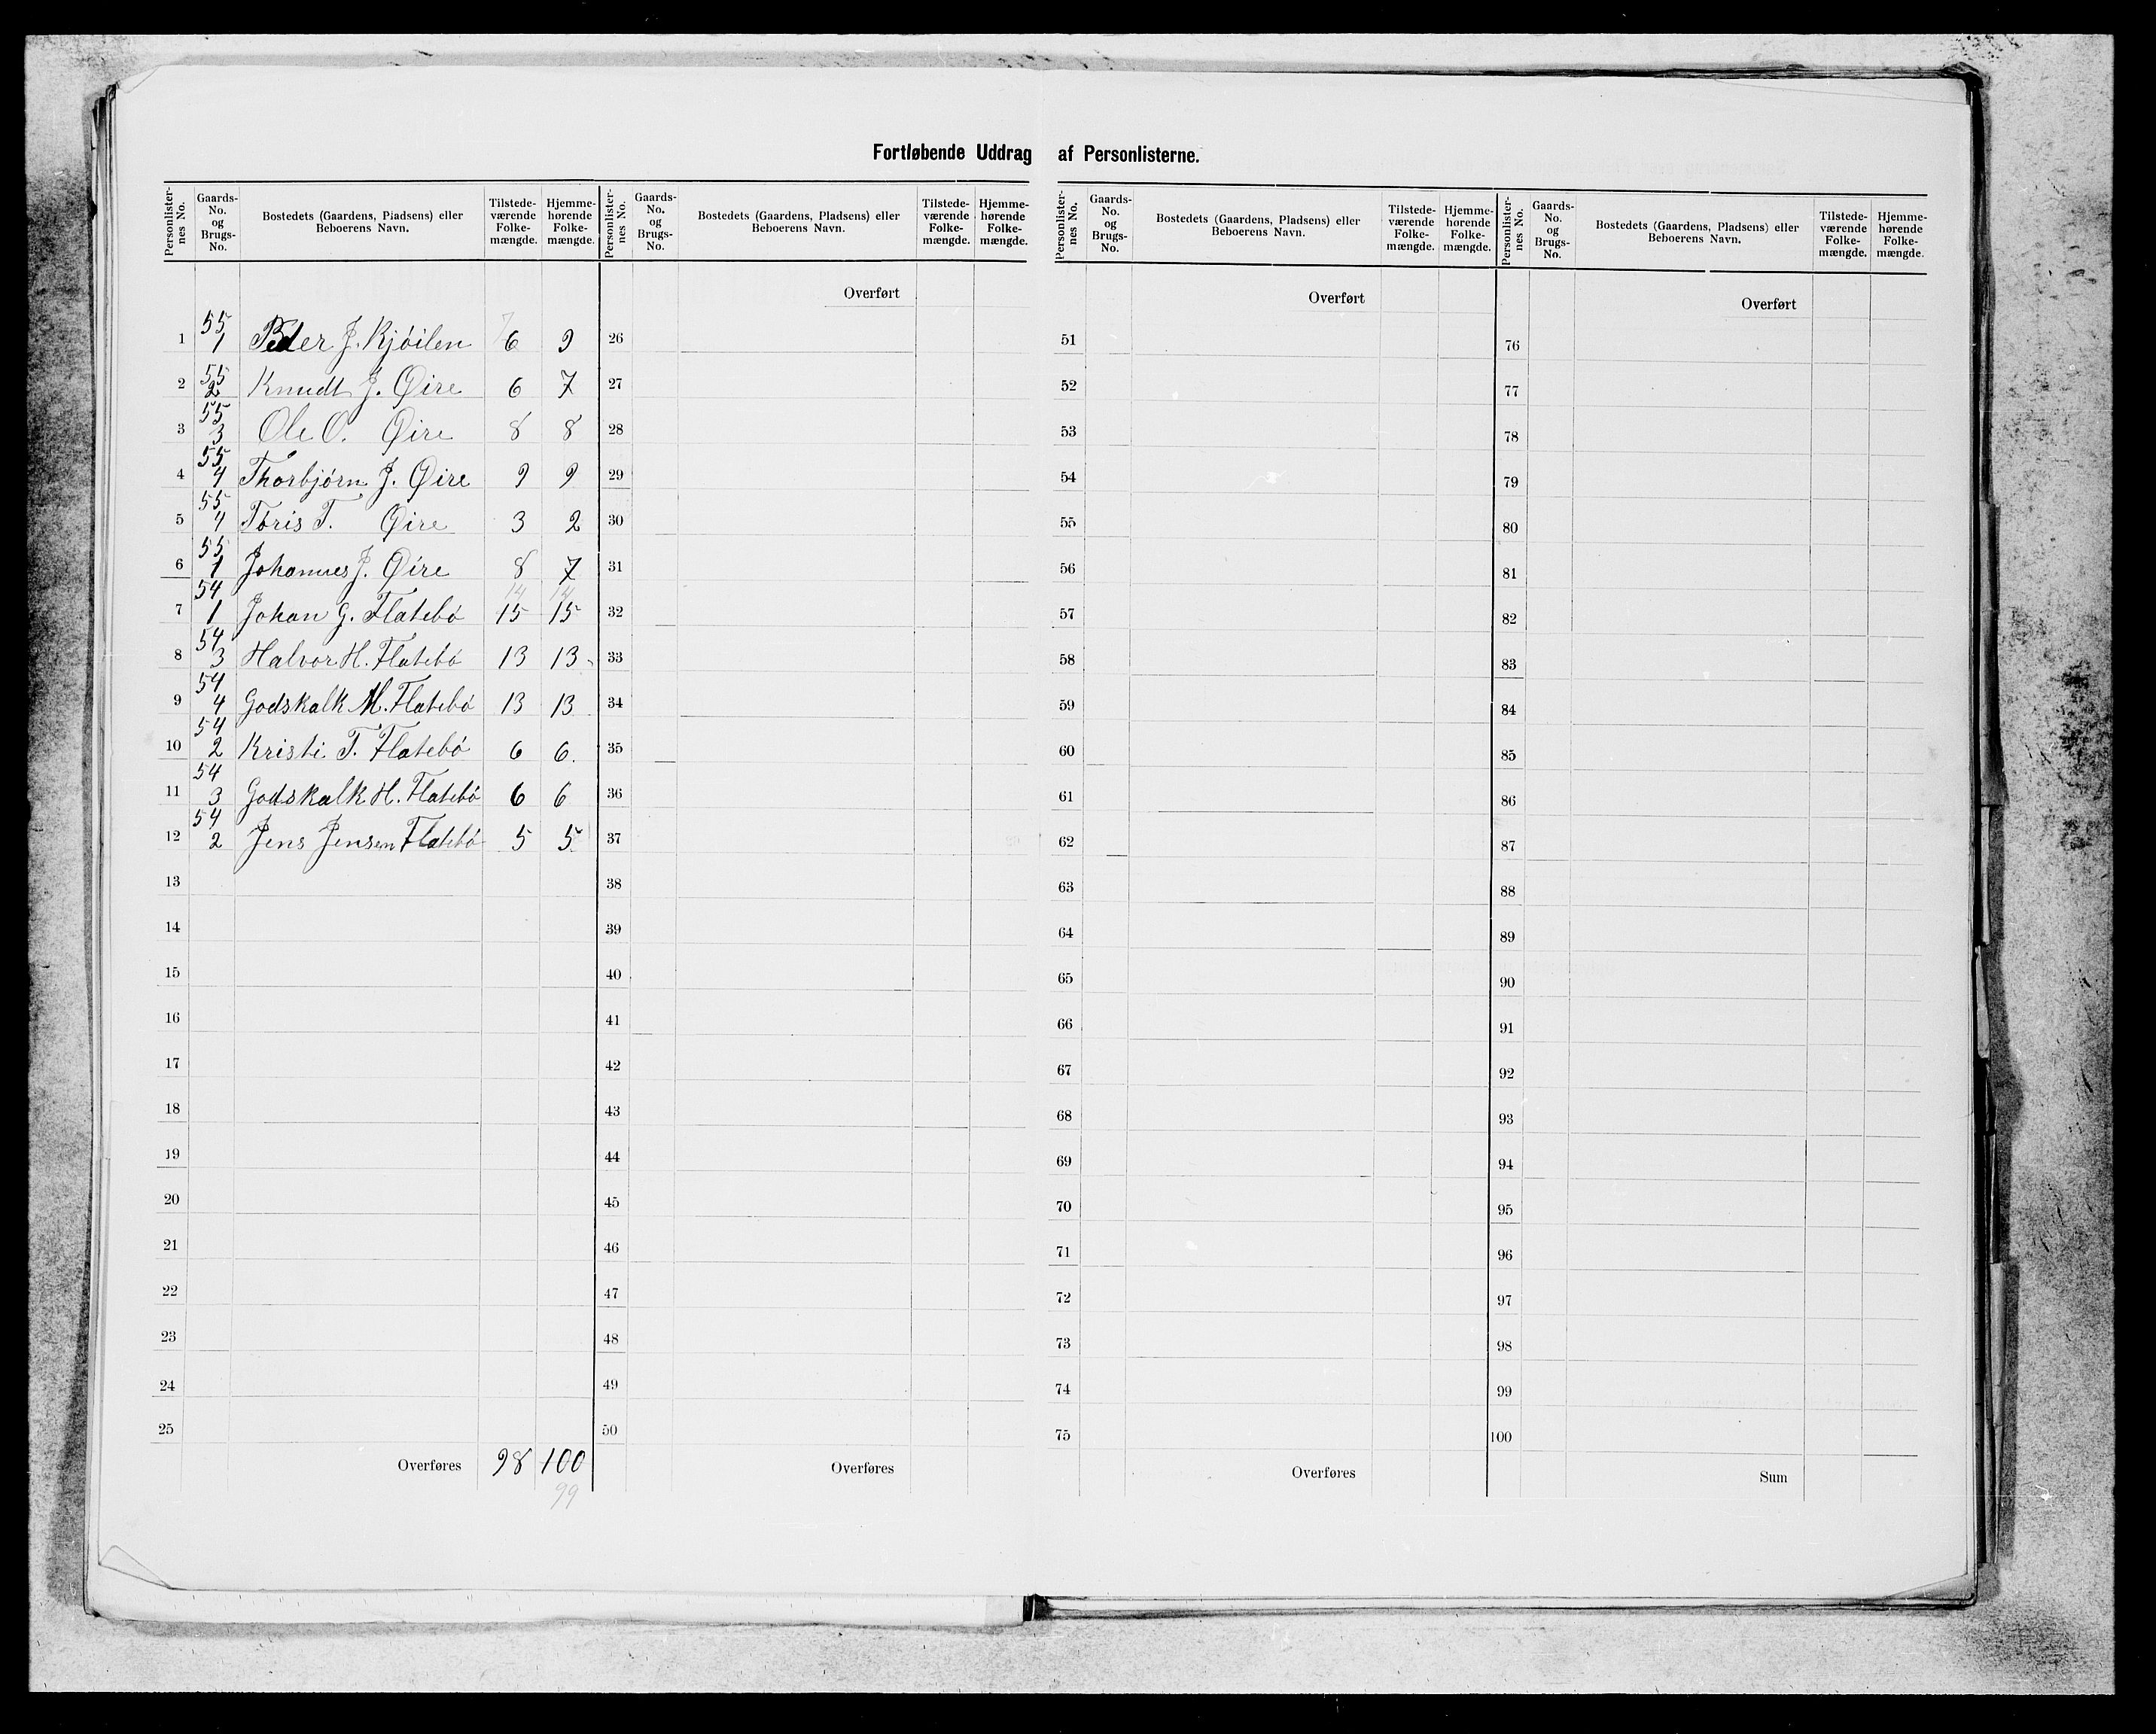 Fortløbende Uddrag af Personlisterne.
Personlisternes No. | Gaards-No. og Brugs-No. | Bostedets (Gaardens, Pladsens) eller Beboerens Navn. | Tilstedeværende Folkemængde. | Hjemmehørende Folkemængde.
1 | 55 1 | Peder J. Kjøilen | 6 | 9
2 | 55 2 | Knudt J. Øire | 6 | 7
3 | 55 3 | Ole O. Øire | 8 | 8
4 | 55 4 | Thorbjørn J. Øire | 9 | 9
5 | 55 4 | Toris T. Øire | 3 | 2
6 | 55 1 | Johannes J. Øire | 8 | 7
14 14
7 | 54 1 | Johan G. Flatebø | 15 | 15
8 | 54 3 | Halvor H. Flatebø | 13 | 13
9 | 54 4 | Godskalk M. Flatebø | 13 | 13
10 | 54 2 | Kristi T. Flatebø | 6 | 6.
11 | 54 3 | Godskalk H. Flatebø | 6 | 6
12 | 54 2 | Jens Jensen Flatebø | 5 | 5
13
14
15
16
17
18
19
20
21
22
23
24
25
Overføres | 98 | 100
99
Personlisternes No. | Gaards-No. og Brugs-No. | Bostedets (Gaardens, Pladsens) eller Beboerens Navn. | Tilstedeværende Folkemængde. | Hjemmehørende Folkemængde.
Overført
26
27
28
29
30
31
32
33
34
35
36
37
38
39
40
41
42
43
44
45
46
47
48
49
50
Overføres
Personlisternes No. | Gaards-No. og Brugs-No. | Bostedets (Gaardens, Pladsens) eller Beboerens Navn. | Tilstedeværende Folkemængde. | Hjemmehørende Folkemængde.
Overført
51
52
53
54
55
56
57
58
59
60
61
62
63
64
65
66
67
68
69
70
71
72
73
74
75
Overføres
Personlisternes No. | Gaards-No. og Brugs-No. | Bostedets (Gaardens, Pladsens) eller Beboerens Navn. | Tilstedeværende Folkemængde. | Hjemmehørende Folkemængde.
Overført
76
77
78
79
80
81
82
83
84
85
86
87
88
89
90
91
92
93
94
95
96
97
98
99
100
Sum